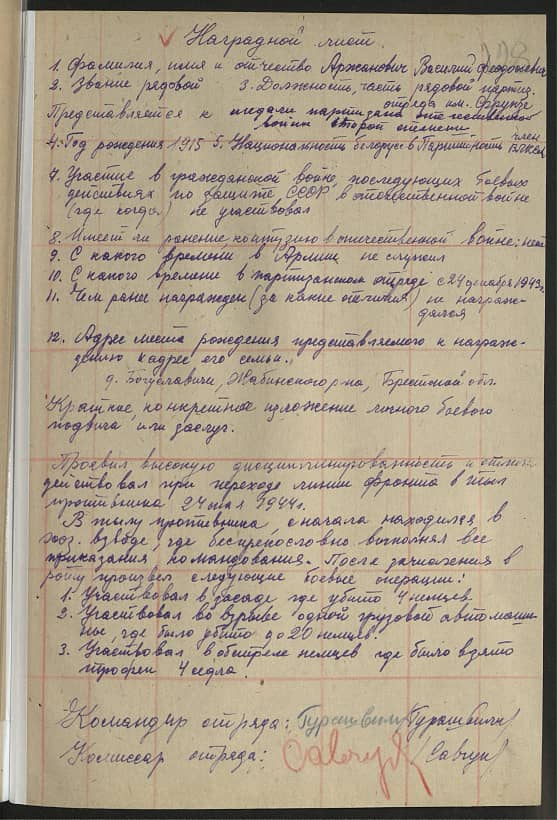 Наградной лист
1. Фамилия, имя и отчество Аржанович Василий Феодосьевич
2. Звание рядовой 3. Должность, часть рядовой партиз.
отряда им. Фрунзе
Представляется к медали партизана отечественной
войны второй степени
4. Год рождения 1915 5. Национальность белорус 6 Партийность член ВЛКСМ
7. Участие в гражданской войне, последующих боевых
действиях по защите СССР, в отечественной войне
(где когда) не участвовал
8. Имеет ли ранение контузию в отечественной войне: нет
9. С какого времени в Армии не служил
10. С какого времени в партизанском отряде с 24 декабря 1943 г.
11. Чем ранее награжден (за какие отличия) не награж-
дался
12. Адрес места рождения представляемого к награж-
дению и адрес его семьи.
д. Богуславичи, Жабинского р-на, Брестской обл.
Краткое, конкретное изложение личного боевого
подвига или заслуг.
Проявил высокую дисциплинированность и
действовал при переходе линии фронта в тыл
противника 24 мая 1944 г.
В тылу противника, сначала находился в
хоз. взводе, где беспрекословно выполнял все
приказания командования. После зачисления в
роту произвел следующие боевые операции:
1. Участвовал в засаде где убито 4 немцев.
2. Участвовал во взрыве одной грузовой автомаши-
ны, где было убито до 20 немцев.
3. Участвовал в обстреле немцев где было взято
трофеи 4 седла.
Командир отряда:
Комиссар отряда: /Савчук/